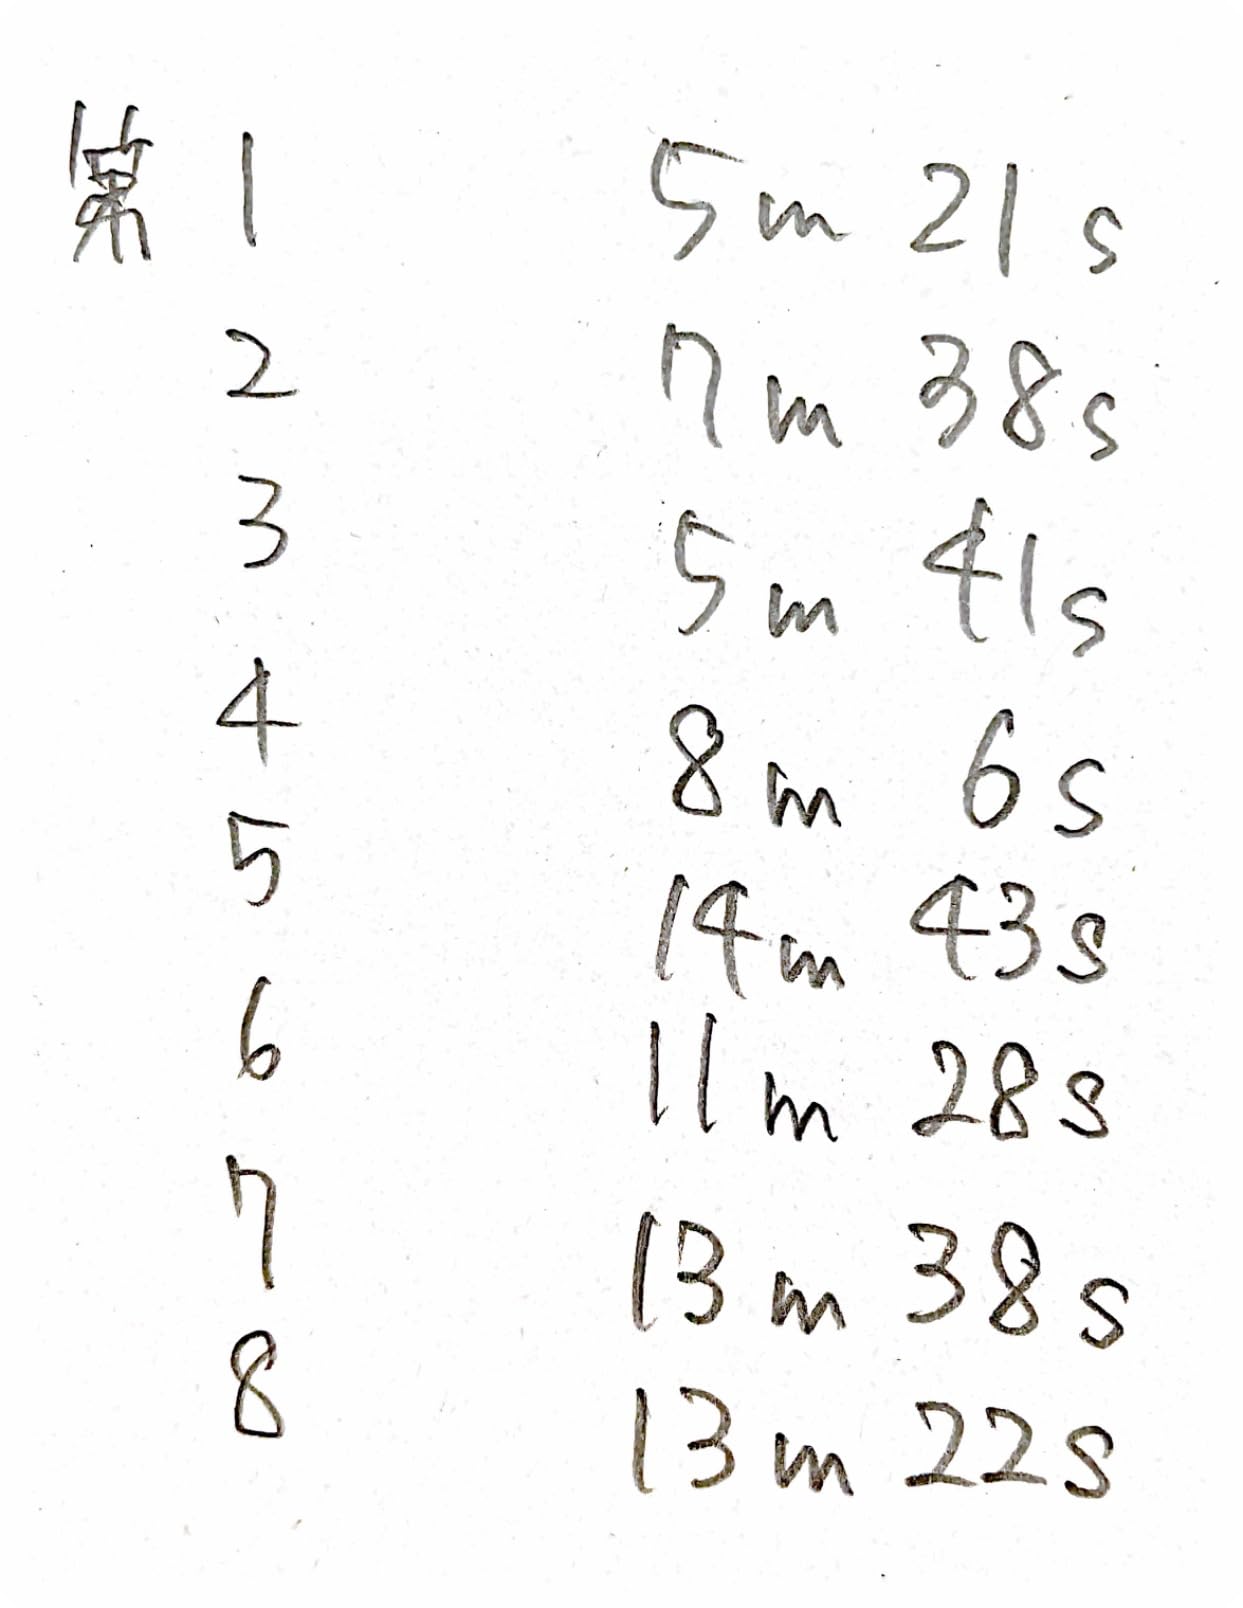 第 1 5m 21s
2 7m 38s
3 5m 41s
4 8m 6s
5 14m 43s
6 11m 28s
7 13m 38s
8 13m 22s